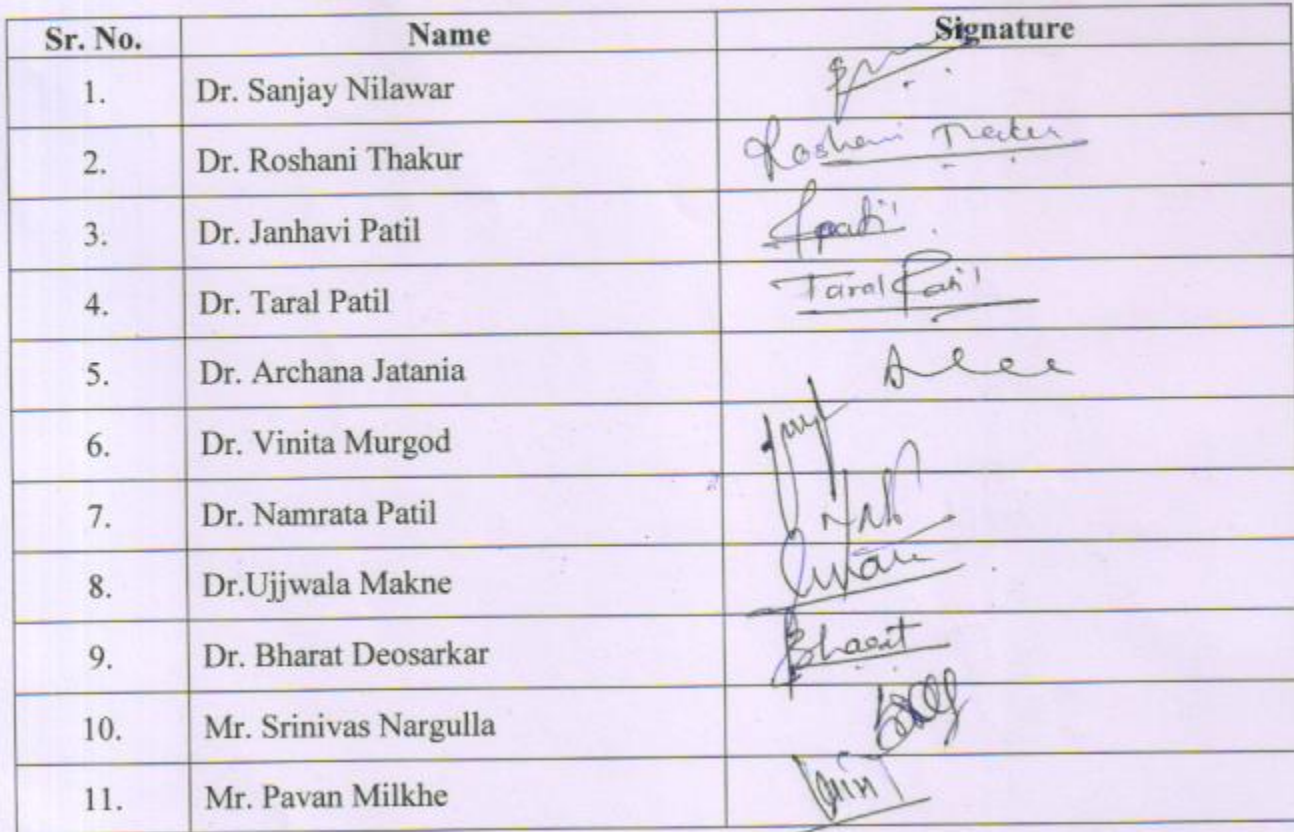 Sr. No. Name Signature
1. Dr. Sanjay Nilawar
2. Dr. Roshani Thakur Roshani Thakur
3. Dr. Janhavi Patil Jpatil
4. Dr. Taral Patil Taral Patil
5. Dr. Archana Jatania
6. Dr. Vinita Murgod
7. Dr. Namrata Patil
8. Dr.Ujjwala Makne
9. Dr. Bharat Deosarkar Bharat
10. Mr. Srinivas Nargulla
11. Mr. Pavan Milkhe